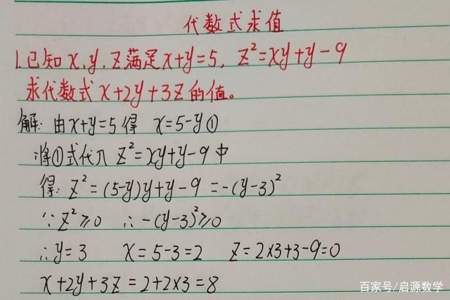 代数式求值
1.已知x,y,z满足x+y=5, z²=xy+y-9
求代数式x+2y+3z的值。
解:由x+y=5得 x=5-y①
将①式代入 z²=xy+y-9中
得:z²=(5-y)y+y-9=-(y-3)²
∵z²≥0 ∴-(y-3)²≥0
∴y=3 x=5-3=2 z=2×3+3-9=0
x+2y+3z=2+2×3=8
百家号/启源数学